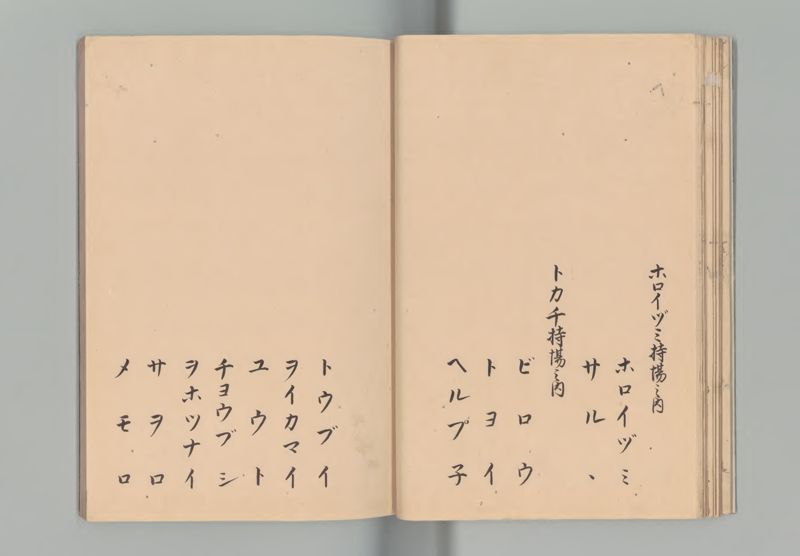 ホロイヅミ持場之内
ホロイヅミ
サルヽ
トカチ持場之内
ビロウ
トヨイ
ヘルプ子
トウブイ
ヲイカマイ
ユウト
チヨウブシ
ヲホツナイ
サヲロ
メモロ